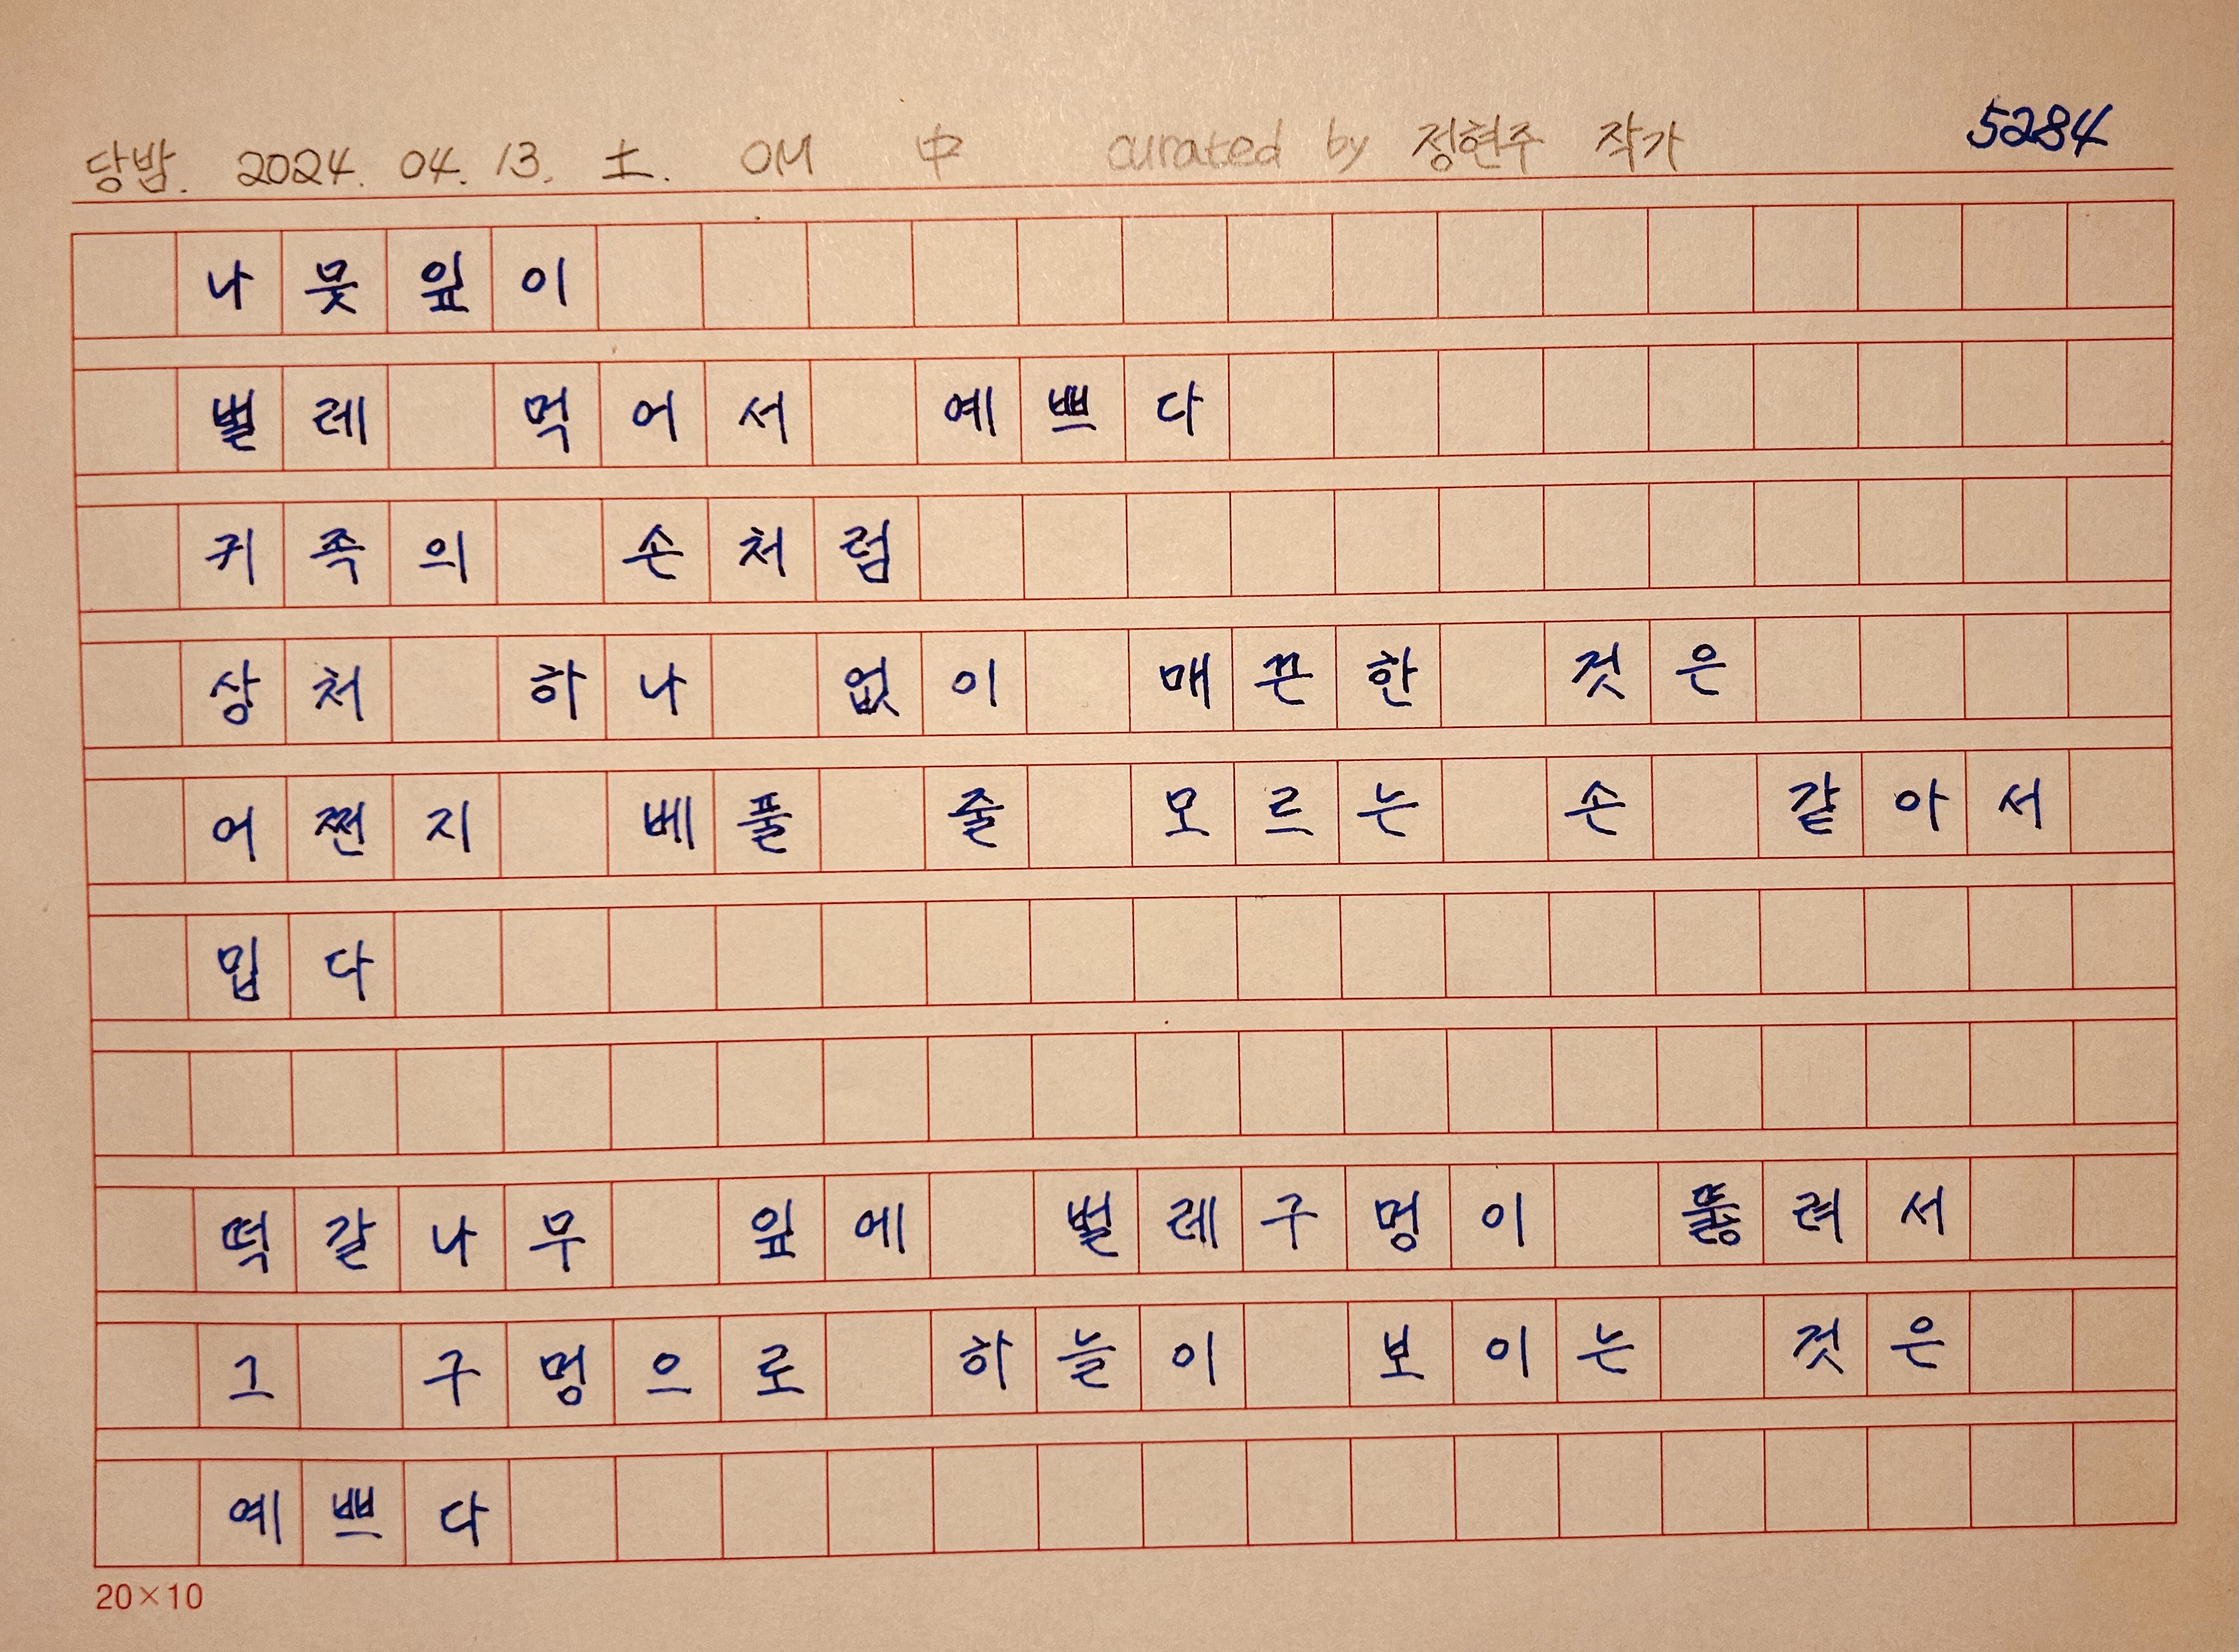 당밤. 2024. 04. 13. 土. OM 中 curated by 정현주 작가 5284
나뭇잎이
벌레 먹어서 예쁘다
귀족의 손처럼
상처 하나 없이 매끈한 것은
어쩐지 베풀 줄 모르는 손 같아서
밉다
떡갈나무 잎에 벌레구멍이 뚫려서
그 구멍으로 하늘이 보이는 것은
예쁘다
20×10